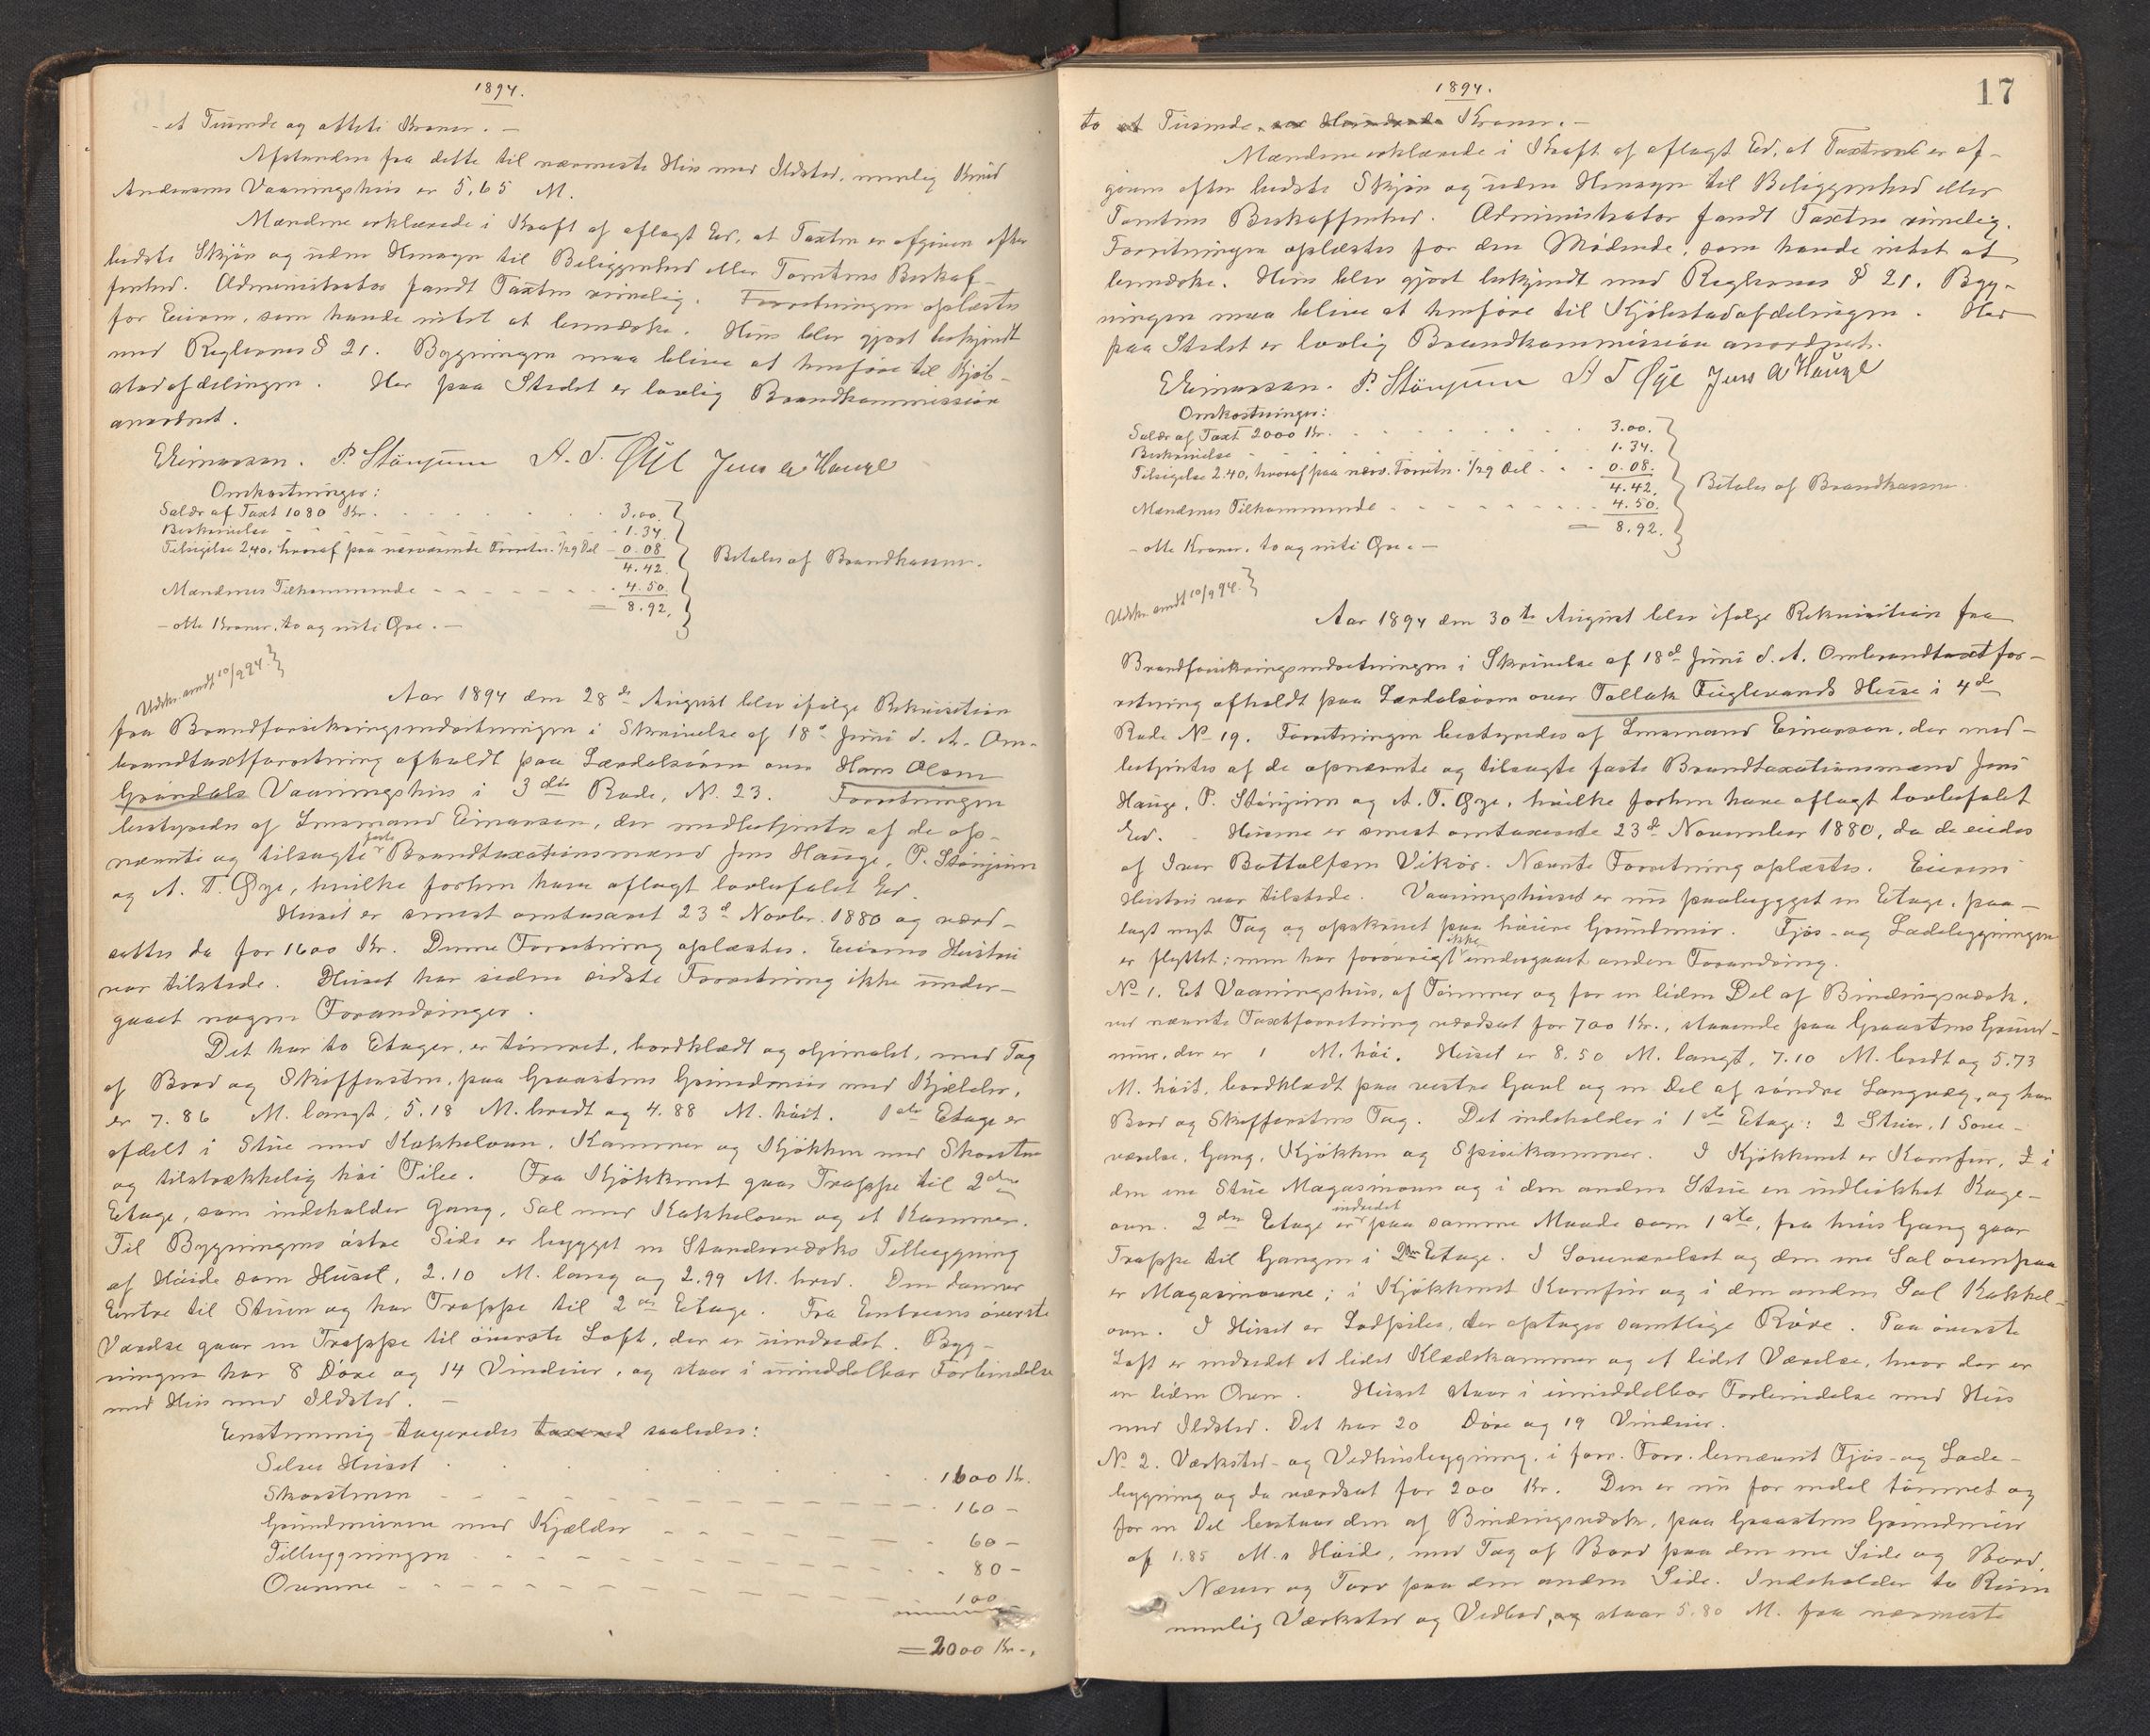 1894.
- et Tusinde og otteti Kroner. -
Afstanden fra dette til nærmeste Hus med Ildsted, nemlig Knud
Andersens Vaaningshus er 5,65 M.
Mændene erklærede i Kraft af aflagt Ed, at Taxten er afgiven efter
bedste Skjøn og uden Hensyn til Beliggenhed eller Tomtens Beskaf-
fenhed. Administrator fandt Taxten rimelig. Forretningen oplæstes
for Eieren, som havde intet at bemærke. Hun blev gjort bekjendt
med Reglernes § 21. Bygningen maa blive at henføre til Kjøb-
stadafdelingen. Her paa Stedet er lovlig Brandkommission
anordnet.
E Einarsen. P. Stönjum A. T. Øye Jens A Hauge
Omkostninger:
Salær af Taxt 1080 Kr. 3.00.
Beskrivelse 1.34.
Tilsigelse 2,40, hvoraf paa nærværende Forretn. 1/29 Del - 0.08
4.42.
Betales af Brandkassen.
Mændenes Tilkommende 4.50.
= 8.92.
- otte Kroner, to og niti Øre. -
Udskr. sendt 10/9 94.
Aar 1894 den 28de August blev ifølge Rekvisition
fra Brandforsikringsindretningen i Skrivelse af 18de Juni d. A. Om-
brandtaxtforretning afholdt paa Lærdalsøren over Hans Olsen
Grøndals Vaaningshus i 3die Rode, N. 23. Forretningen
bestyredes af Lensmand Einarsen, der medbetjentes af de op-
faste
nævnte og tilsagte Brandtaxationsmænd Jens Hauge, P. Stönjum
og A. T. Øye, hvilke forhen have aflagt lovbefalet Ed.
Huset er senest omtaxeret 23de Novbr. 1880 og værd-
sattes da for 1600 Kr. Denne Forretning oplæstes. Eierens Hustru
var tilstede. Huset har siden sidste Forretning ikke under-
gaaet nogen Forandringer.
Det har to Etager, er tømret, bordklædt og oljemalet, med Tag
af Bord og Skifersten, paa Graastens Grundmur med Kjælder,
er 7.86 M. langt, 5.18 M. bredt og 4.88 M. høit. 1ste Etage er
afdelt i Stue med Kakkelovn, Kammer og Kjøkken med Skorsten
og tilstrækkelig høi Pibe. Fra Kjøkkenet gaar Trappe til 2den
Etage, som indeholder Gang, Sal med Kakkelovn og et Kammer.
Til Bygningens østre Side er bygget en Standerværks Tilbygning
af Høide som Huset, 2.10 M. lang og 2.99 M. bred. Den danner
Entre til Stuen og har Trappe til 2den Etage. Fra Entreens øverste
Værelse gaar en Trappe til øverste Loft, der er uindredet. Byg-
ningen har 8 Døre og 14 Vinduer, og staar i umiddelbar Forbindelse
med Hus med Ildsted. -
Enstemmig taxeredes taxered saaledes:
Selve Huset 1600 Kr.
Skorstenen 160 -
Grundmuren med Kjælder 60 -
Tilbygningen 80 -
Ovnene 100
= 2000 Kr -,
1894.
17
to et Tusinde, Kroner. -
Mændene erklærede i Kraft af aflagt Ed, at Taxterne er af-
given efter bedste Skjøn og uden Hensyn til Beliggenhed eller
Tomtens Beskaffenhed. Administrator fandt Taxten rimelig.
Forretningen oplæstes for den Mødende, som havde intet at
bemærke. Hun blev gjort bekjendt med Reglernes § 21. Byg-
ningen maa blive at henføre til Kjøbstadafdelingen. Her
paa Stedet er lovlig Brandkommission anordnet.
E Einarsen. P. Stönjum A T Øye Jens A Hauge
Omkostninger:
Salær af Taxt 2000 Kr. 3.00.
Beskrivelse 1.34.
Tilsigelse 2.40, hvoraf paa nærv. Forretn. 1/29 Del 0.08.
4.42.
Betales af Brandkassen.
Mændenes Tilkommende 4.50.
= 8.92.
- otte Kroner, to og niti Øre. -
Udskr. sendt 10/9 94.
Aar 1894 den 30te August blev ifølge Rekvisition fra
Brandforsikringsindretningen i Skrivelse af 18de Juni d. A. Ombrandtaxtfor-
retning afholdt paa Lærdalsøren over Tollak Fuglesands Huse i 4de
Rode No 19. Forretningen bestyredes af Lensmand Einarsen, der med-
betjentes af de opnævnte og tilsagte faste Brandtaxationsmænd Jens
Hauge, P. Stönjum og A. T. Øye, hvilke forhen have aflagt lovbefalet
Ed. - Husene er senest omtaxerede 23de November 1880, da de eiedes
af Iver Bottolfsen Vikör. Nævnte Forretning oplæstes. Eierens
Hustru var tilstede. Vaaningshuset er nu paabygget en Etage, paa-
lagt nyt Tag og opskruet paa høiere Grundmur. Fjøs- og Ladebygningen
ikke
er flyttet; men har forøvrigt undergaaet anden Forandring.
No 1. Et Vaaningshus, af Tømmer og for en liden Del af Bindingsværk,
ved nævnte Taxtforretning værdsat for 700 Kr., staaende paa Graastens Grund-
mur, der er 1 M. høi. Huset er 8.50 M. langt, 7.10 M. bredt og 5.73
M. høit, bordklædt paa vestre Gavl og en Del af søndre Langvæg, og har
Bord og Skiferstens Tag. Det indeholder i 1ste Etage: 2 Stuer, 1 Sove-
værelse, Gang, Kjøkken og Spisekammer. I Kjøkkenet er Komfur, I i
den ene Stue Magasinovn og i den anden Stue en indlukket Kage-
indredet
ovn. 2den Etage er paa samme Maade som 1ste, fra hvis Gang gaar
Trappe til Gangen i 2den Etage. I Soveværelset og den ene Sal ovenpaa
er Magasinovne; i Kjøkkenet Komfur og i den anden Sal Kakkel-
ovn. I Huset er Lodpiber, der optager samtlige Røre. Paa øverste
Loft er indredet et lidet Klædekammer og et lidet Værelse, hvor der er
en liden Ovn. Huset staar i umiddelbar Forbindelse med Hus
med Ildsted. Det har 20 Døre og 19 Vinduer.
No 2. Værksted- og Vedhusbygning, i forr. Forr. benævnt Fjøs- og Lade-
bygning og da værdsat for 200 Kr. Den er nu for endel tømret og
for en Del bestaar den af Bindingsværk, paa Graastens Grundmur
af 1.85 M.s Høide, med Tag af Bord paa den ene Side og Bord,
Næver og Torv paa den anden Side. Indeholder to Rum
nemlig Værksted og Vedbod, og staar 5.80 M. fra nærmeste